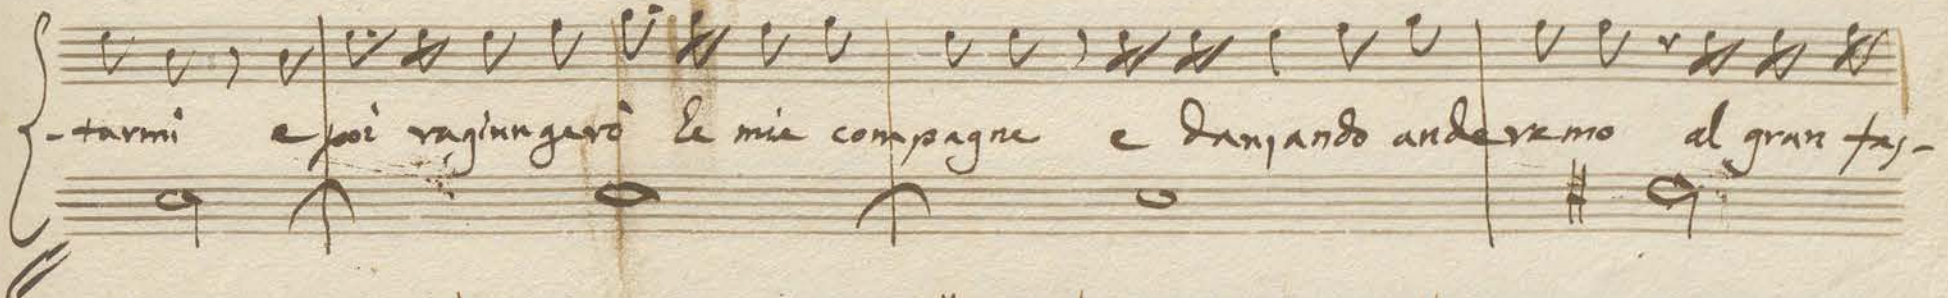 -tarmi e poi ragiungerò le mie compagne e danzando anderemo al gran fas-